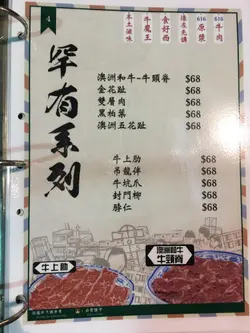 4
616
牛肉
616
原漿
邊走先講
食好西
牛魔王
本土滷味
罕有系列
澳洲和牛-牛頸脊 $68
金花趾 $68
雙層肉 $68
黑柏葉 $68
澳洲五花趾 $68
牛上肋 $68
吊龍伴 $68
牛坑爪 $68
封門柳 $68
脖仁 $68
牛上肋
澳洲和牛
牛頸脊